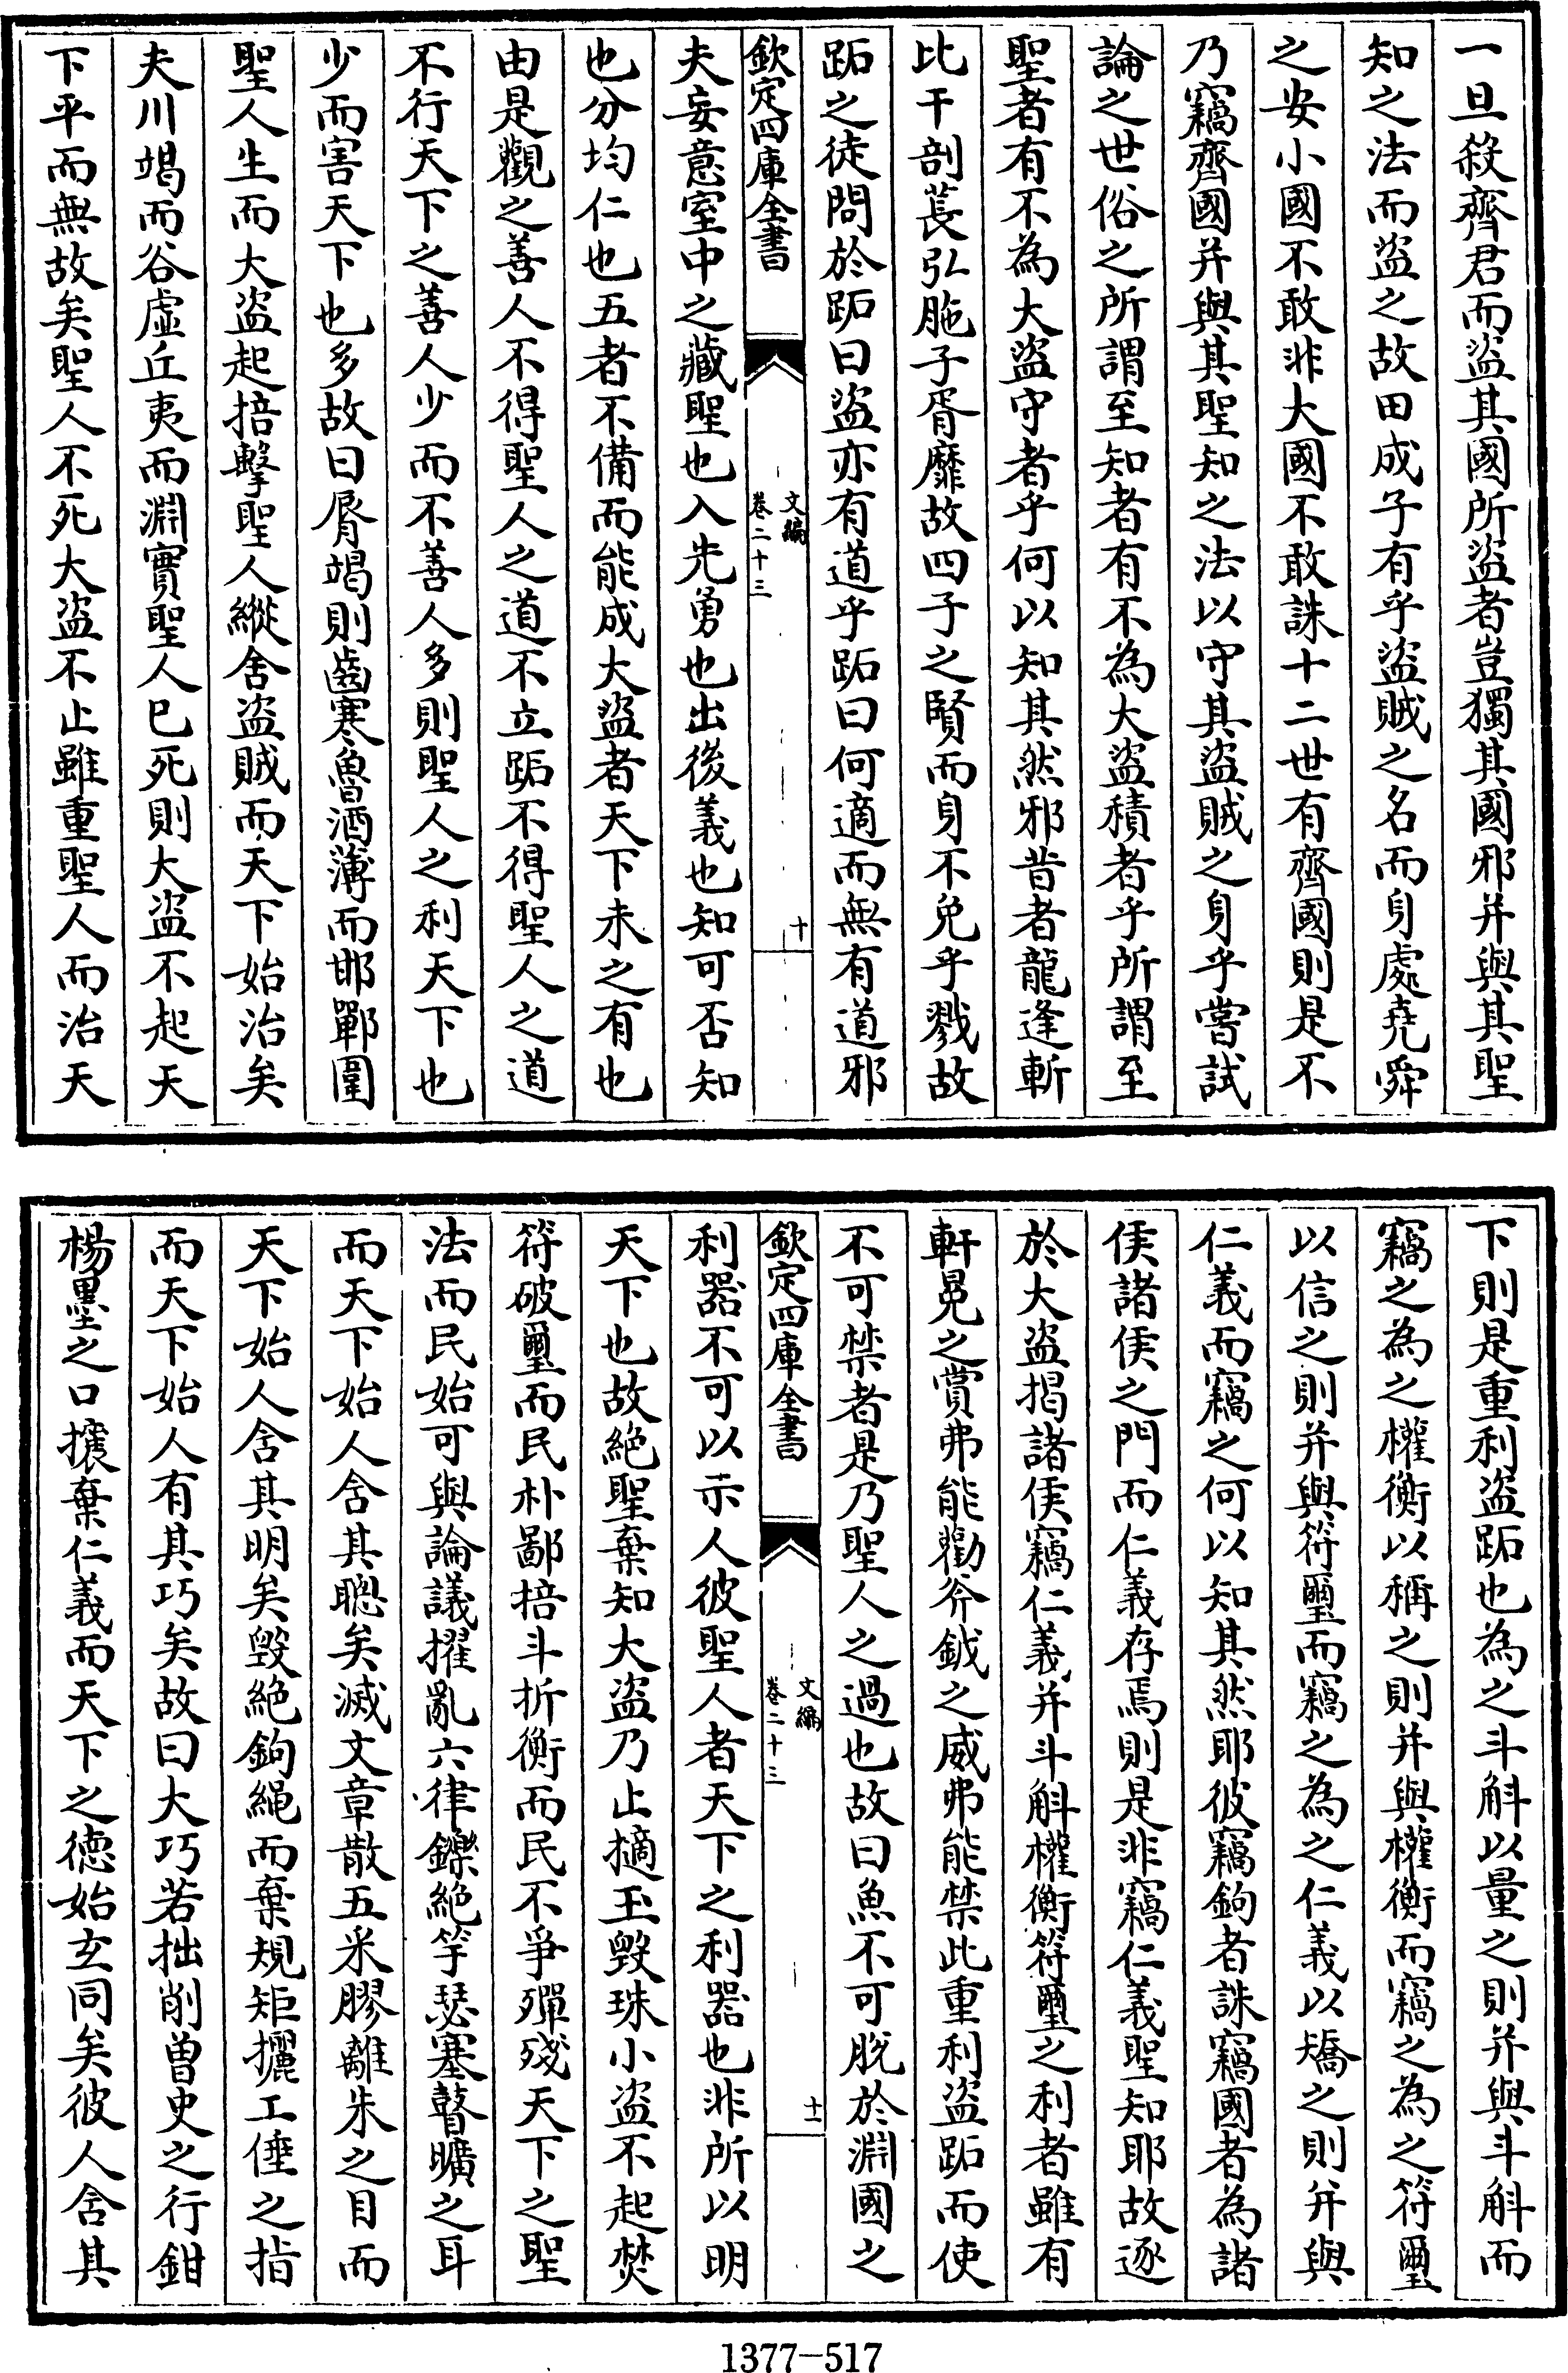 一旦殺齊君而盜其國所盜者豈獨其國邪并與其聖
知之法而盜之故田成子有乎盜賊之名而身處堯舜
之安小國不敢非大國不敢誅十二世有齊國則是不
乃竊齊國并與其聖知之法以守其盜賊之身乎嘗試
論之世俗之所謂至知者有不為大盜積者乎所謂至
聖者有不為大盜守者乎何以知其然邪昔者龍逢斬
比干剖萇弘胣子胥靡故四子之賢而身不免乎戮故
跖之徒問於跖曰盜亦有道乎跖曰何適而無有道邪
欽定四庫全書
文編
卷二十三
十
夫妄意室中之藏聖也入先勇也出後義也知可否知
也分均仁也五者不備而能成大盜者天下未之有也
由是觀之善人不得聖人之道不立跖不得聖人之道
不行天下之善人少而不善人多則聖人之利天下也
少而害天下也多故曰脣竭則齒寒魯酒薄而邯鄲圍
聖人生而大盜起掊擊聖人縱舍盜賊而天下始治矣
夫川竭而谷虛丘夷而淵實聖人已死則大盜不起天
下平而無故矣聖人不死大盜不止雖重聖人而治天
下則是重利盜跖也為之斗斛以量之則并與斗斛而
竊之為之權衡以稱之則并與權衡而竊之為之符璽
以信之則并與符璽而竊之為之仁義以矯之則并與
仁義而竊之何以知其然耶彼竊鉤者誅竊國者為諸
侯諸侯之門而仁義存焉則是非竊仁義聖知耶故逐
於大盜揭諸侯竊仁義并斗斛權衡符璽之利者雖有
軒冕之賞弗能勸斧鉞之威弗能禁此重利盜跖而使
不可禁者是乃聖人之過也故曰魚不可脫於淵國之
欽定四庫全書
文編
卷二十三
十一
利器不可以示人彼聖人者天下之利器也非所以明
天下也故絶聖棄知大盜乃止擿玉毀珠小盜不起焚
符破璽而民朴鄙掊斗折衡而民不爭殫殘天下之聖
法而民始可與論議擢亂六律鑠絶竽瑟塞瞽曠之耳
而天下始人含其聰矣滅文章散五采膠離朱之目而
天下始人含其明矣毀絶鉤繩而棄規矩攦工倕之指
而天下始人有其巧矣故曰大巧若拙削曾史之行鉗
楊墨之口攘棄仁義而天下之德始玄同矣彼人含其
1377-517